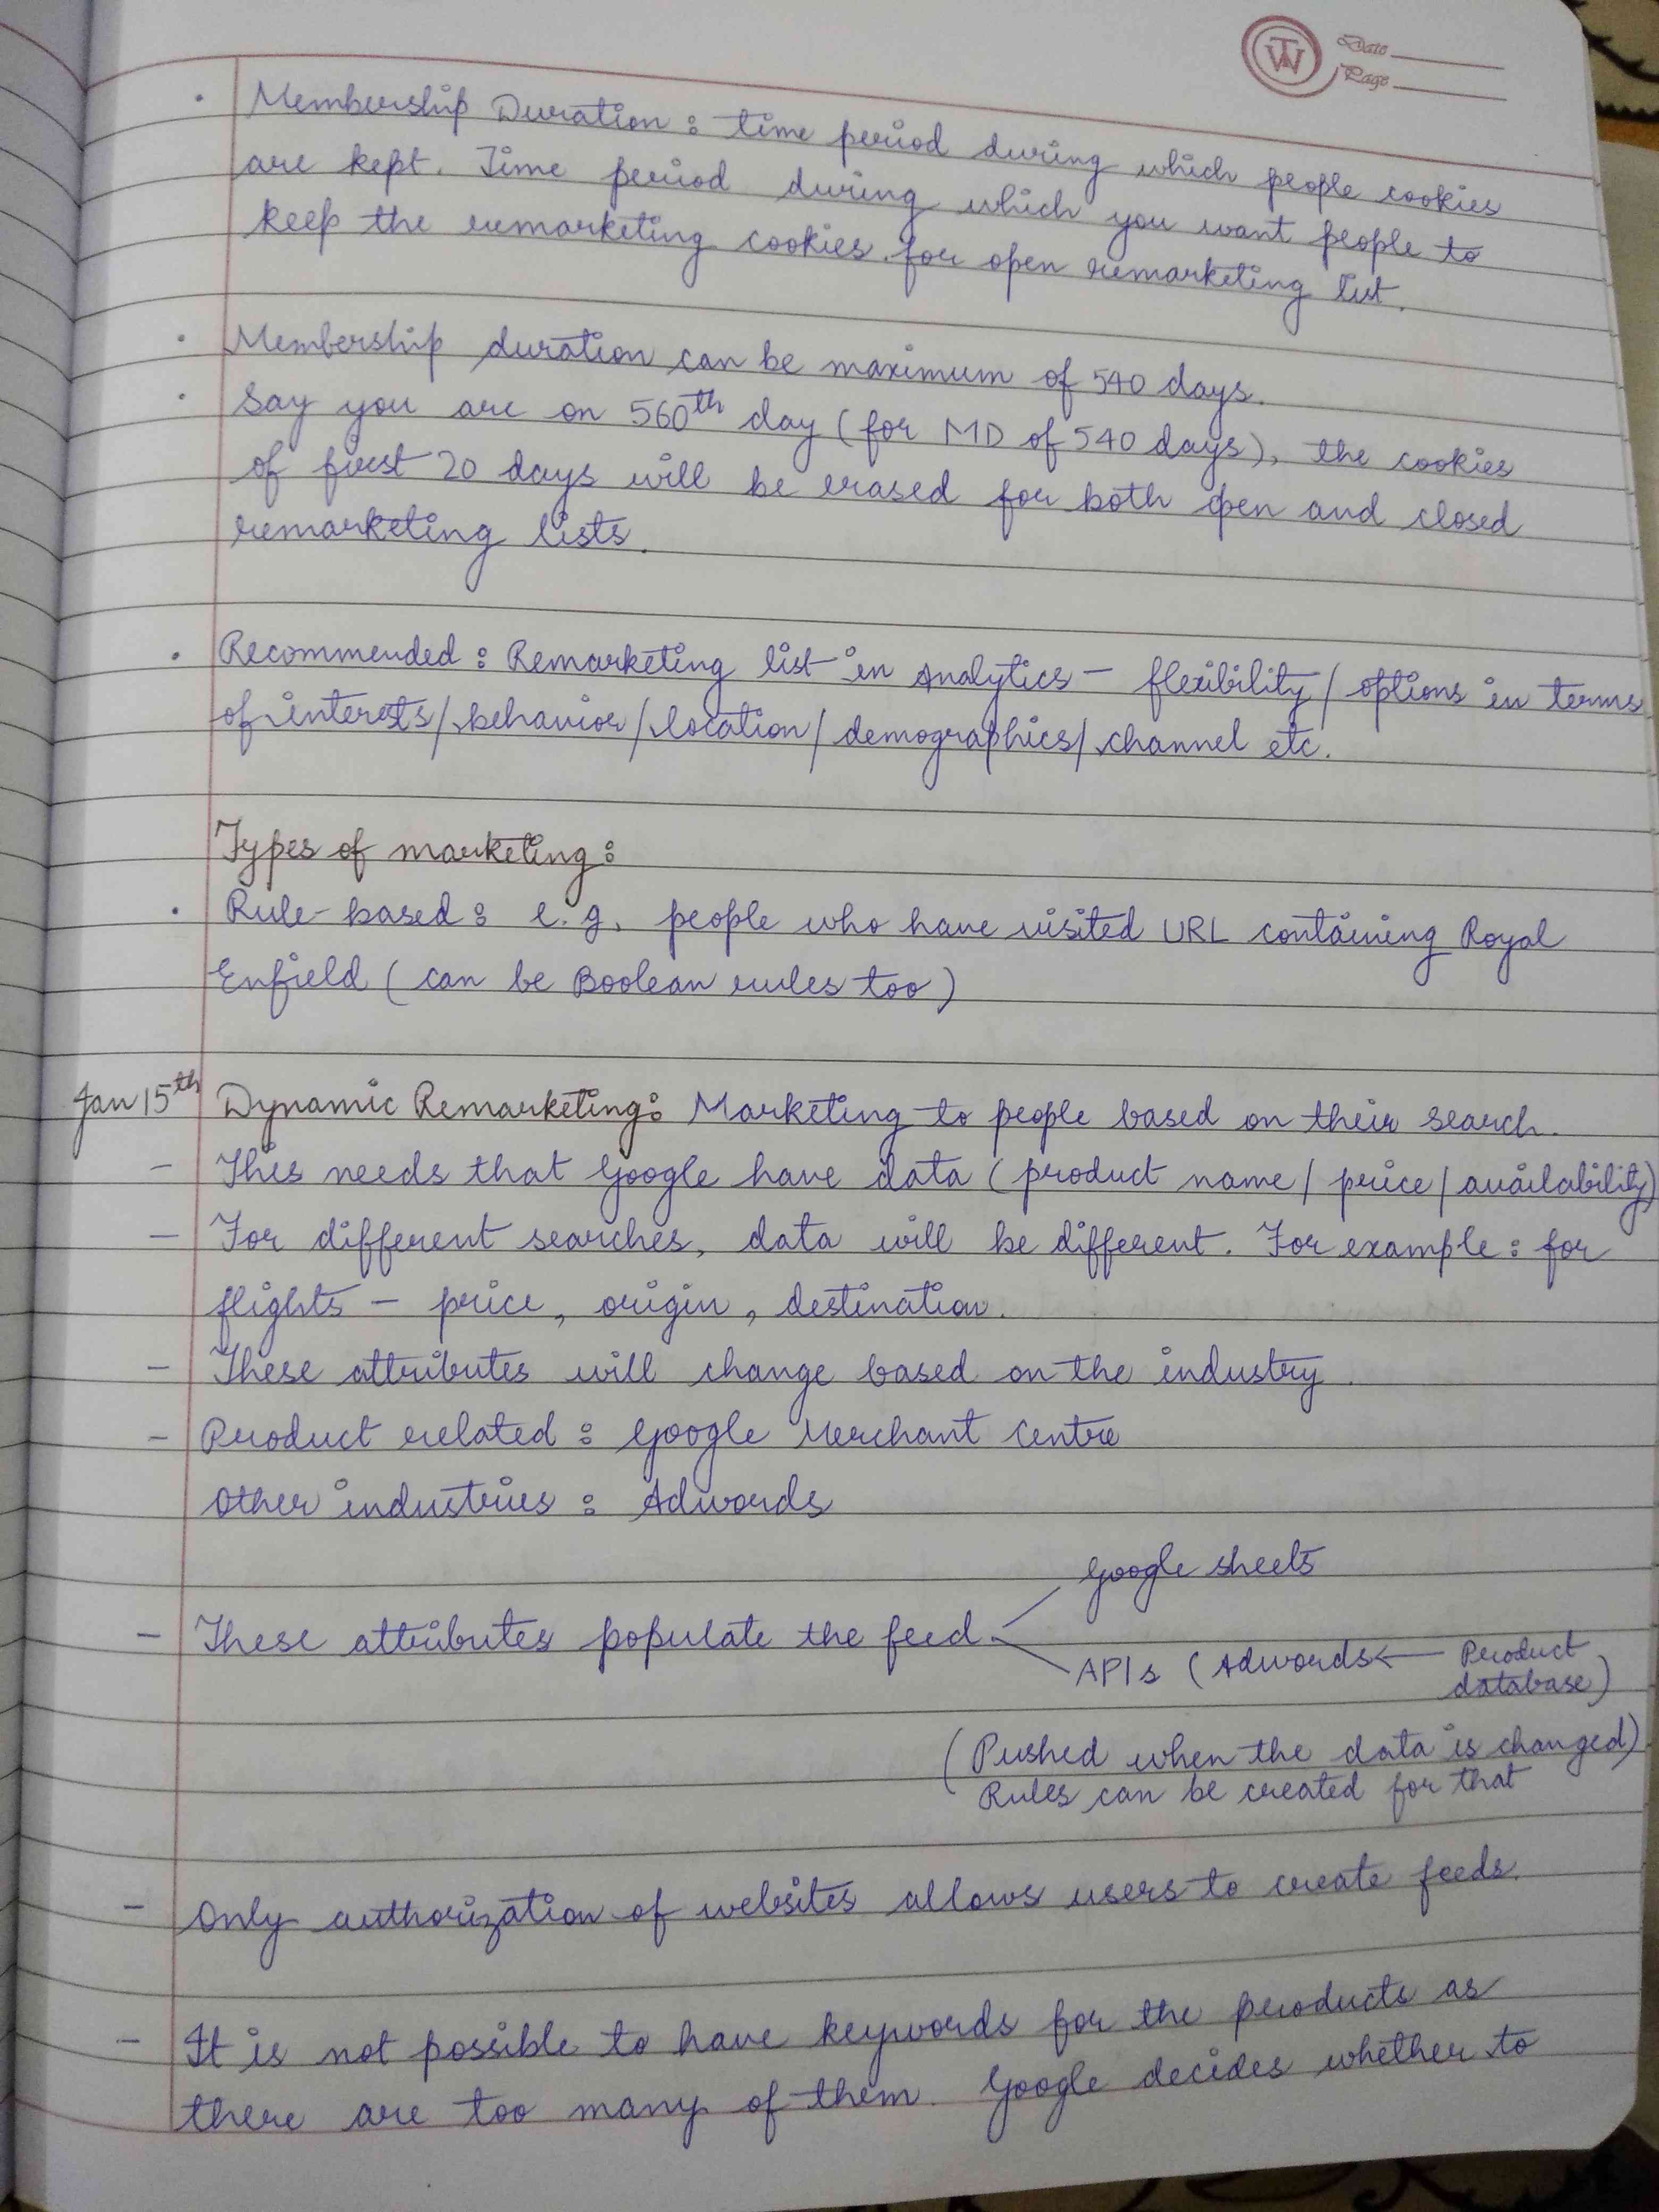 TW
Date
Page
• Membership Duration : time period during which people cookies
are kept. Time period during which you want people to
keep the remarketing cookies for open remarketing list.
• Membership duration can be maximum of 540 days.
• Say you are on 560th day (for MD of 540 days), the cookies
of first 20 days will be erased for both open and closed
remarketing lists.
• Recommended : Remarketing list in Analytics – flexibility / options in terms
of interests / behavior / location / demographics / channel etc.
Types of marketing :
• Rule-based : e.g. people who have visited URL containing Royal
Enfield (can be Boolean rules too)
Jan 15th Dynamic Remarketing : Marketing to people based on their search.
– This needs that Google have data (product name / price / availability)
– For different searches, data will be different. For example : for
flights – price, origin, destination.
– These attributes will change based on the industry.
– Product related : Google Merchant Centre
Other industries : Adwords
Google sheets
– These attributes populate the feed
APIs (Adwords ← Product
database)
(Pushed when the data is changed)
Rules can be created for that
– Only authorization of websites allows users to create feeds.
– It is not possible to have keywords for the products as
there are too many of them. Google decides whether to